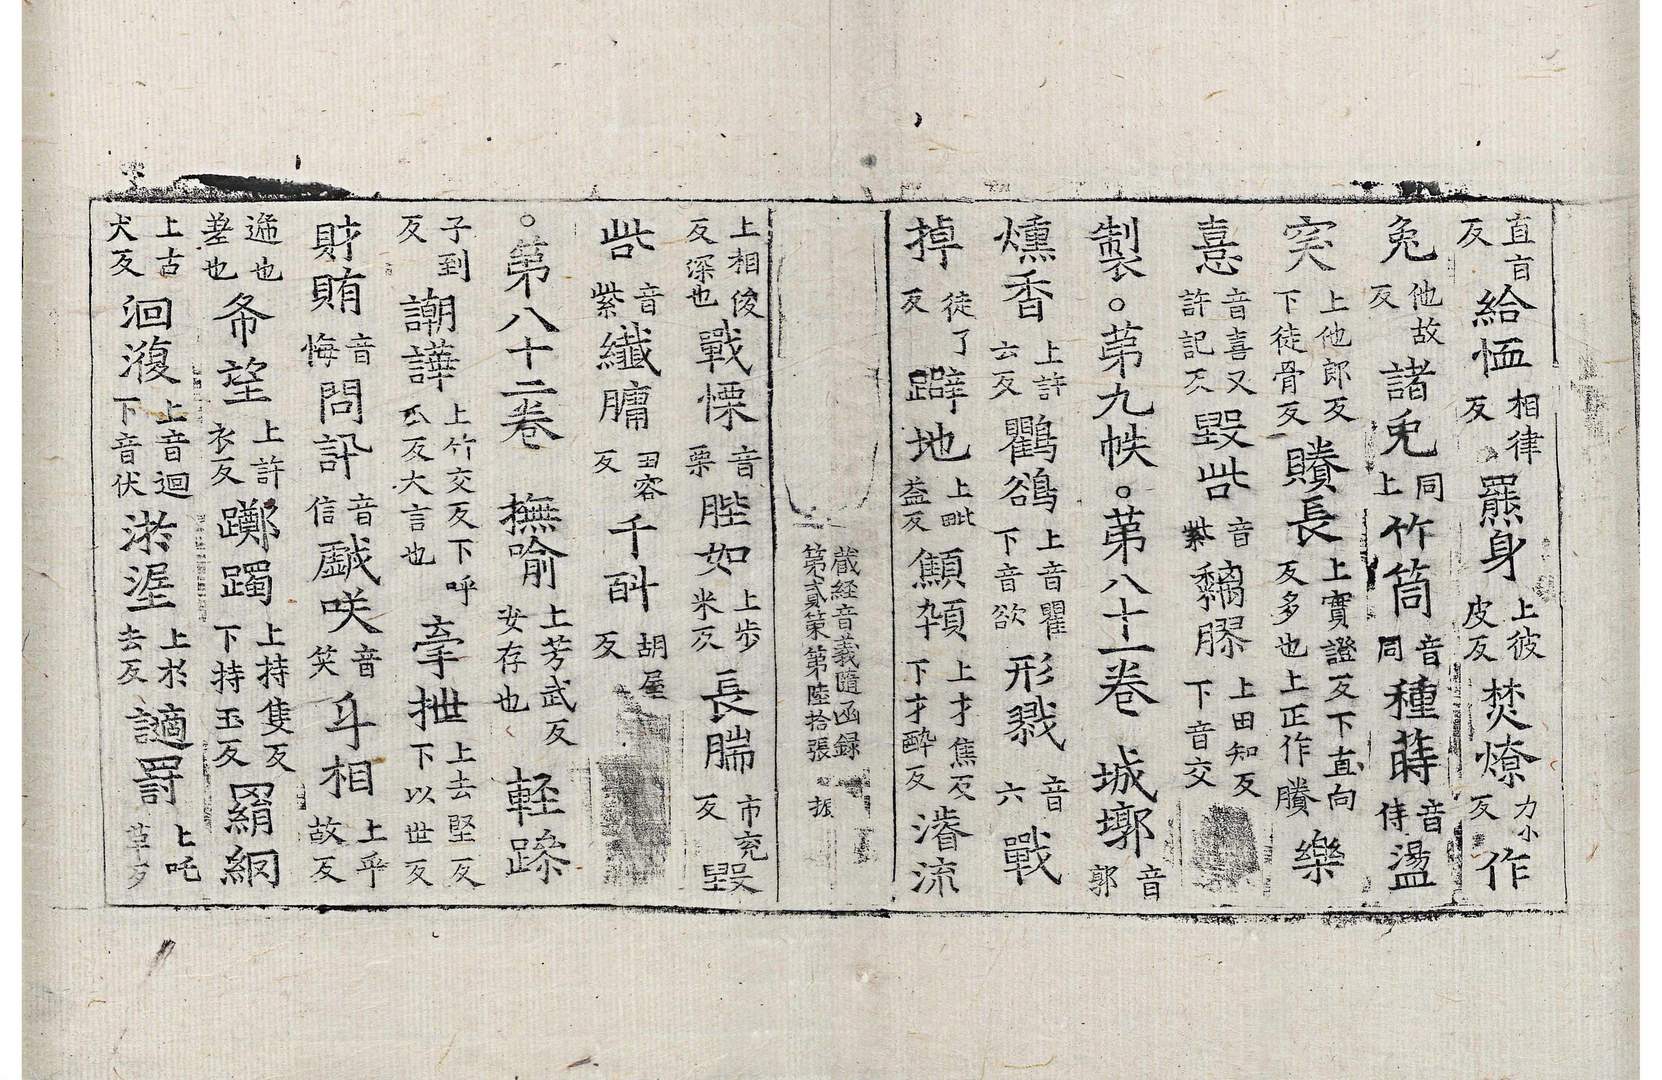 直盲反給恤相律反羆身上彼皮反焚燎力小反作
兔他故反諸兎同上竹筒音同種蒔音侍盪
突上他郎反下徒骨反賸長上實證反下直向反多也上正作賸樂
憙音喜又許記反毀呰音紫黐膠上田知反下音交
製。第九帙。第八十一卷 城墎音郭
燻香上許云反鸜鵒上音瞿下音欲形戮音六戰
掉徒了反躃地上毗益反顦顇上才焦反下才醉反濬流
藏経音義隨函録
第貳第第陸拾張 振
上相俊反深也戰慄音栗䏶如上步米反長腨市兖反毀
呰音紫纎𦟛田容反千㪷胡屋反
。第八十二卷 撫喻上芳武反安存也輕跡
子到反謿譁上竹交反下呼瓜反大言也牽抴上去堅反下以世反
財賄音悔問訊音信戲咲音笑斗相上乎故反
遞也差也希望上許衣反躑躅上持隻反下持玉反羂網
上古犬反洄澓上音迴下音伏淤涅上於去反讁罰上吒革反